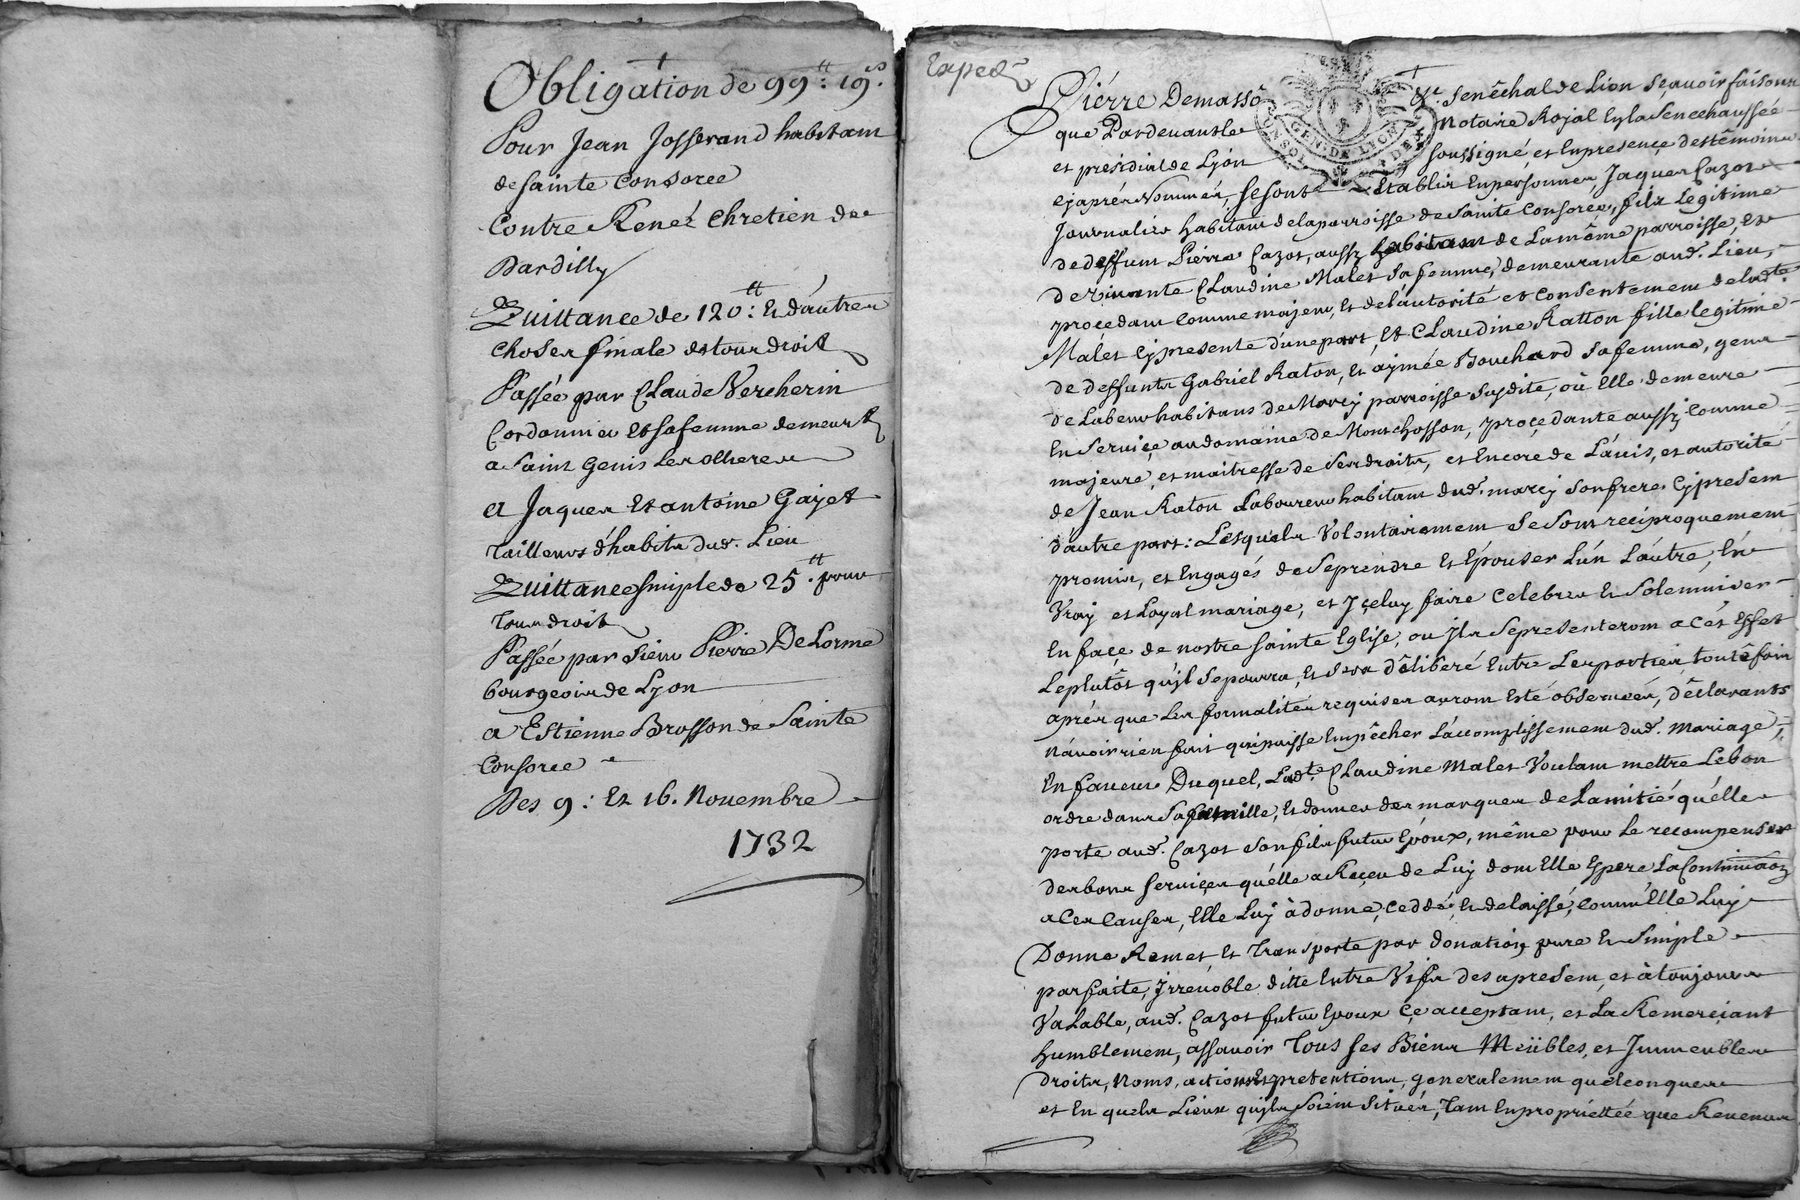 Obligation de 99tt: 19s.
Pour Jean Josserand habitant
de sainte Consorce
Contre Renéz Chretien de
Dardilly
Quittance de 120tt: Et d'autres
choses finale et tour droit
Passée par Claude Vercherin
Cordonnier Et sa femme demeurt
a Saint Genis Les olleres
a Jaques Et antoine Gayet
Tailleurs d'habits dud. Lieu
Quittance simple de 25tt. pour
tour droit
Passée par sieur Pierre De Lorme
bourgeois de Lyon
a Estienne Brosson de Sainte
Consorce
Des 9: Et 16. Novembre
1732
Exped
Pierre Demasso &c. Senêchal de Lion Scavoir faisons
que Pardevant le Notaire Royal En la Senechaussée
et presidial de Lyon soussigné, et En presence des têmoins
cy aprés Nommés, se sont Etablis En personnes, Jaques Cazot
Journalier habitant de la parroisse de Sainte Consorce, fils Legitime
de deffunt Pierre Cazot, aussy habitant de La même parroisse, et
de vivante Claudine Malet sa femme, demeurante aud. Lieu,
procedant comme majeur, et de l'autorité et consentement de lad.te
Malet cy presente d'une part, Et Claudine Ratton fille legitime
de deffunts Gabriel Raton, et aymée Bouchard sa femme, gens
de Labeur habitans de Marcy parroisse susdite, où Elle demeure
En Service au domaine de Montchosson, procedante aussy comme
majeure, et maitresse de ses droits, et Encore de L'avis, et autorité
de Jean Raton Laboureur habitant dud. marcy son frere cy present
d'autre part: Lesquels Volontairement se sont reciproquement
promis, et Engagés de se prendre et Epouser L'un L'autre, En
Vray et Loyal mariage, et Iceluy faire Celebrer et Solemniser
En façe de nostre Sainte Eglise, ou Ils se presenteront a cét Effet
Leplutôt qu'il se pourra, et sera délibéré Entre Les parties toutefois
aprés que Les formalités requises auront Eté observées, déclarants
n'avoir rien fait qui puisse Empêcher L'accomplissement dud. Mariage,
En faveur Duquel, Lad.te Claudine Malet Voulant mettre Le bon
ordre dans sa famille, et donner des marques de L'amitié qu'elle
porte aud. Cazot son fils futur Epoux, même pour Le recompenser
des bons services qu'elle a Reçeu de Luy dont Elle Espere La Continuaõn
a Ces Causes, Elle Luy à donné, Ceddé, et delaissé, Comme Elle Luy
Donne Remet, et Transporte par donation pure et Simple
parfaite, Irrevoble ditte Entre Vifs des apresent, et à toujours
Valable, aud. Cazot futur Epoux Ce acceptant, et La Remerciant
humblement, assavoir Tous ses Biens Meübles, et Immeubles
droits, Noms, actions et pretentions, generalement quelconques
et En quels Lieux qu'ils soient situés, Tant En propriettée que Revenus